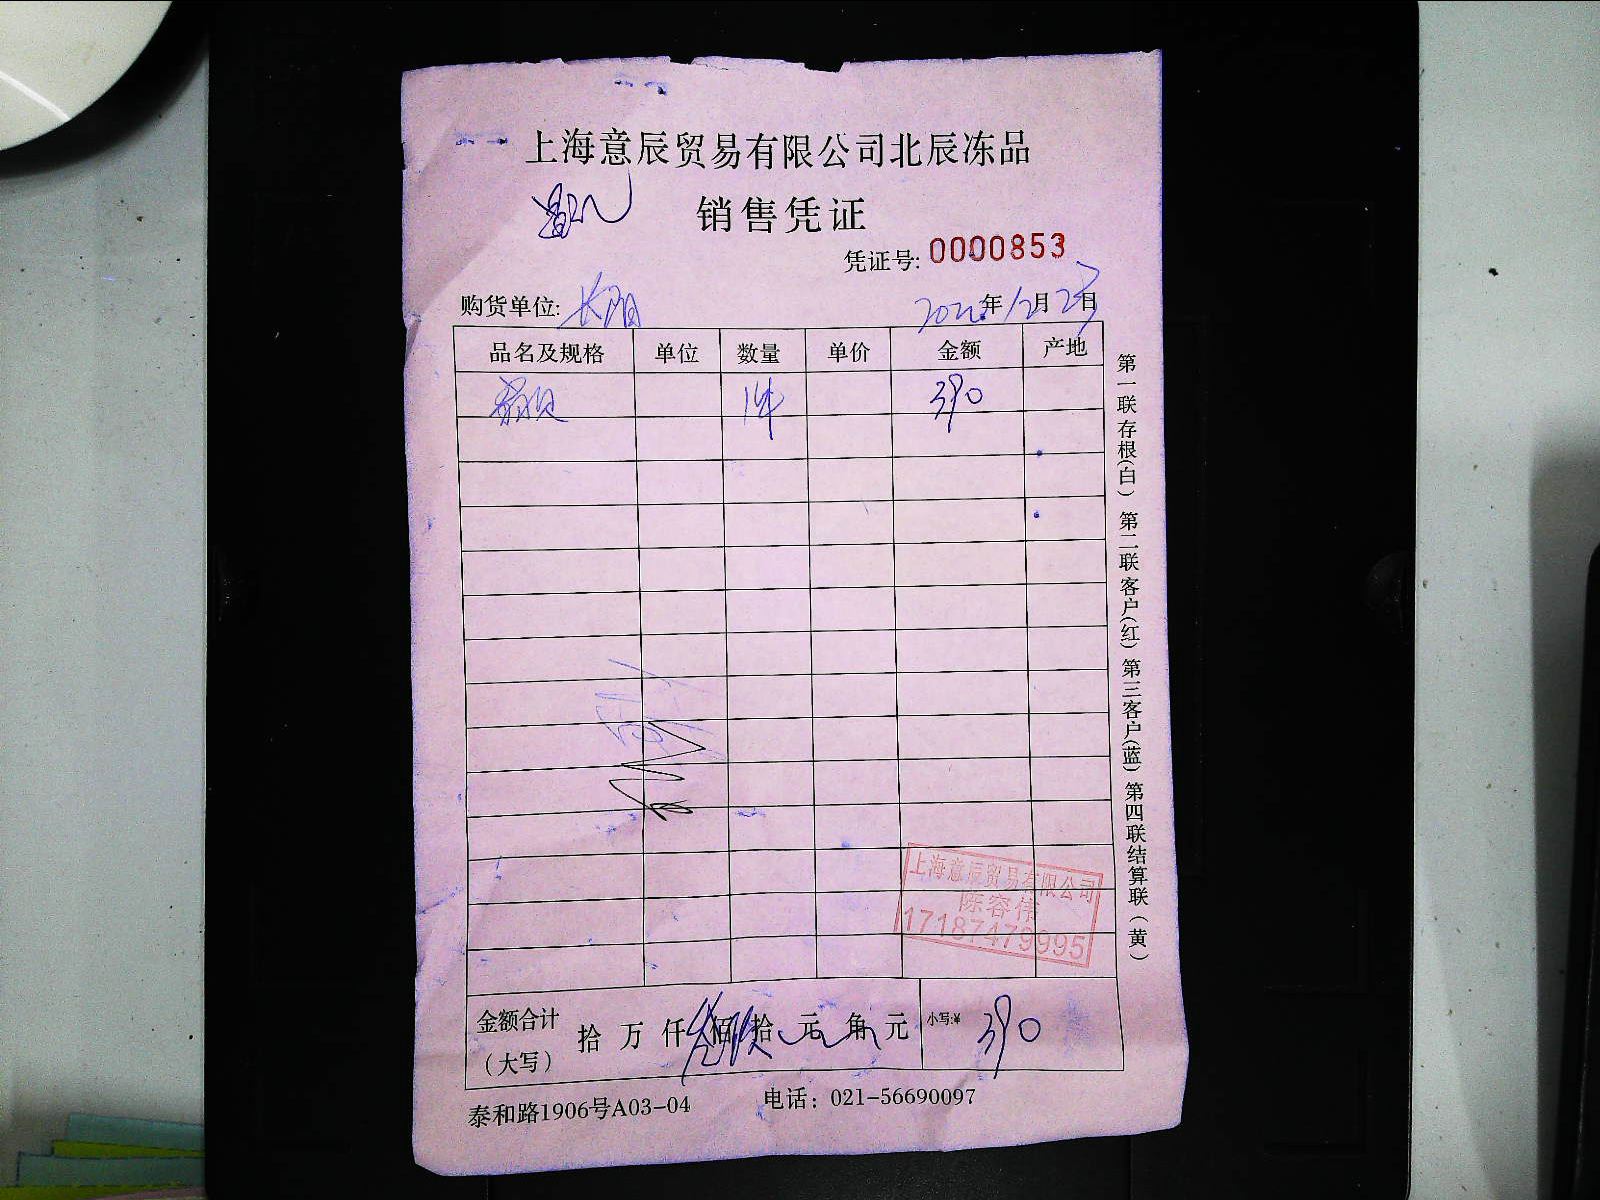 上海意辰贸易有限公司北辰冻品
销售凭证
凭证号: 0000853
购货单位: 长阳 2022年12月23日
品名及规格 单位 数量 单价 金额 产地
1件 390
上海意辰贸易有限公司
陈容伟
17187479995
金额合计（大写） 拾 万 仟 佰 拾 元 角 元 小写:¥ 390
泰和路1906号A03-04 电话：021-56690097
第一联存根(白) 第二联客户(红) 第三客户(蓝) 第四联结算联（黄）